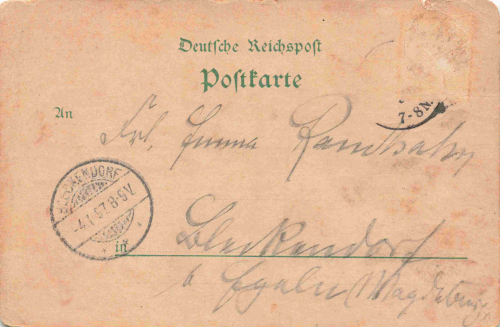 Deutsche Reichspost
Postkarte
7-8N.
An
Frl. Emma
BLECKENDORF
4.1.97.8-9V.
in
Bleckendorf
b Egeln Magdeburg